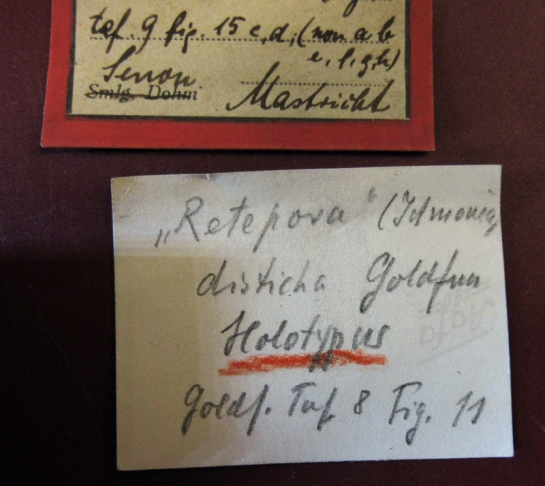 taf. 9 fig. 15 c, d, (non a b
e, f, g, h)
Senon
Smlg. Dohm
Mastricht
„Retepora" (Idmonea)
disticha Goldfuss
Holotypus
Goldf. Taf 8 Fig. 11